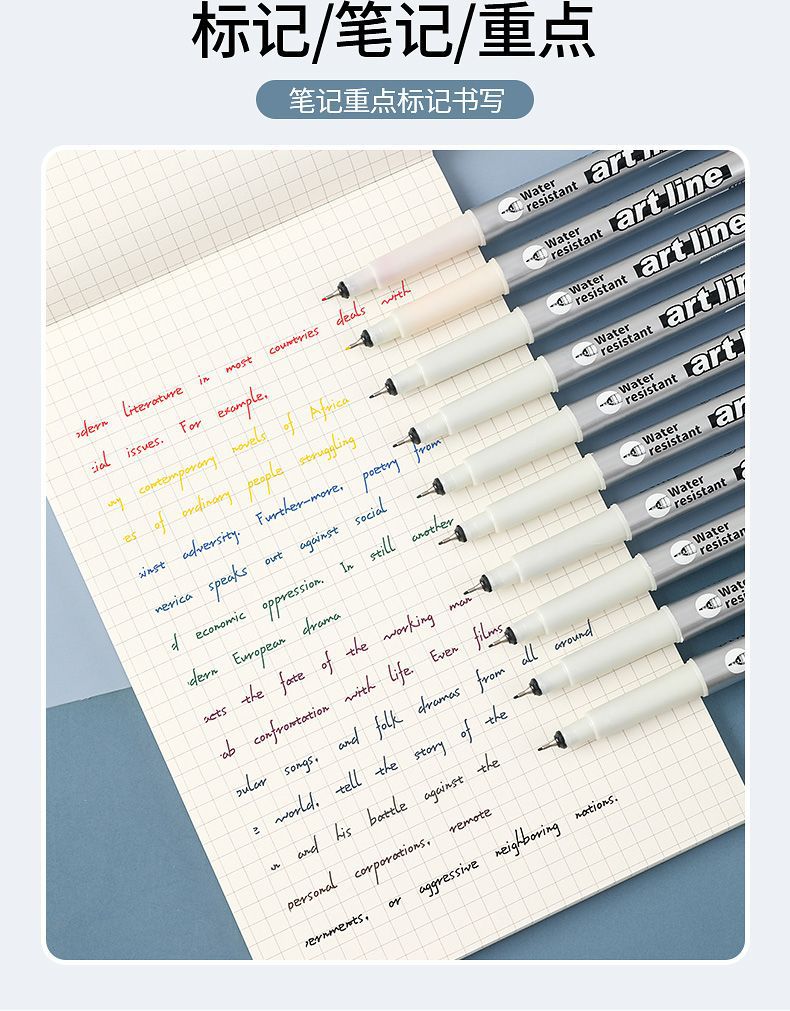 标记/笔记/重点
笔记重点标记书写
Water resistant art line
Water resistant art line
Water resistant art line
Water resistant art
Water resistant art
Water resistant
Water resistant
Water
deals with
literature in most countries
issues. For example,
contemporary novels of Africa
es of ordinary people struggling
adversity. Further-more, poetry from
nerica speaks out against social
d economic oppression. In still another
dern European drama
the fate of the working man
confrontation with life. Even films,
songs, and folk dramas from all around
world, tell the story of the
and his battle against the
personal corporations, remote
or aggressive neighboring nations.